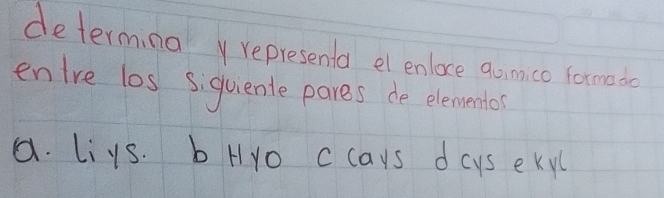 determina y representa el enlace quimico formado
entre los siguiente pares de elementos
a. Li y s. b H y o c ca y s d c y s e k y l